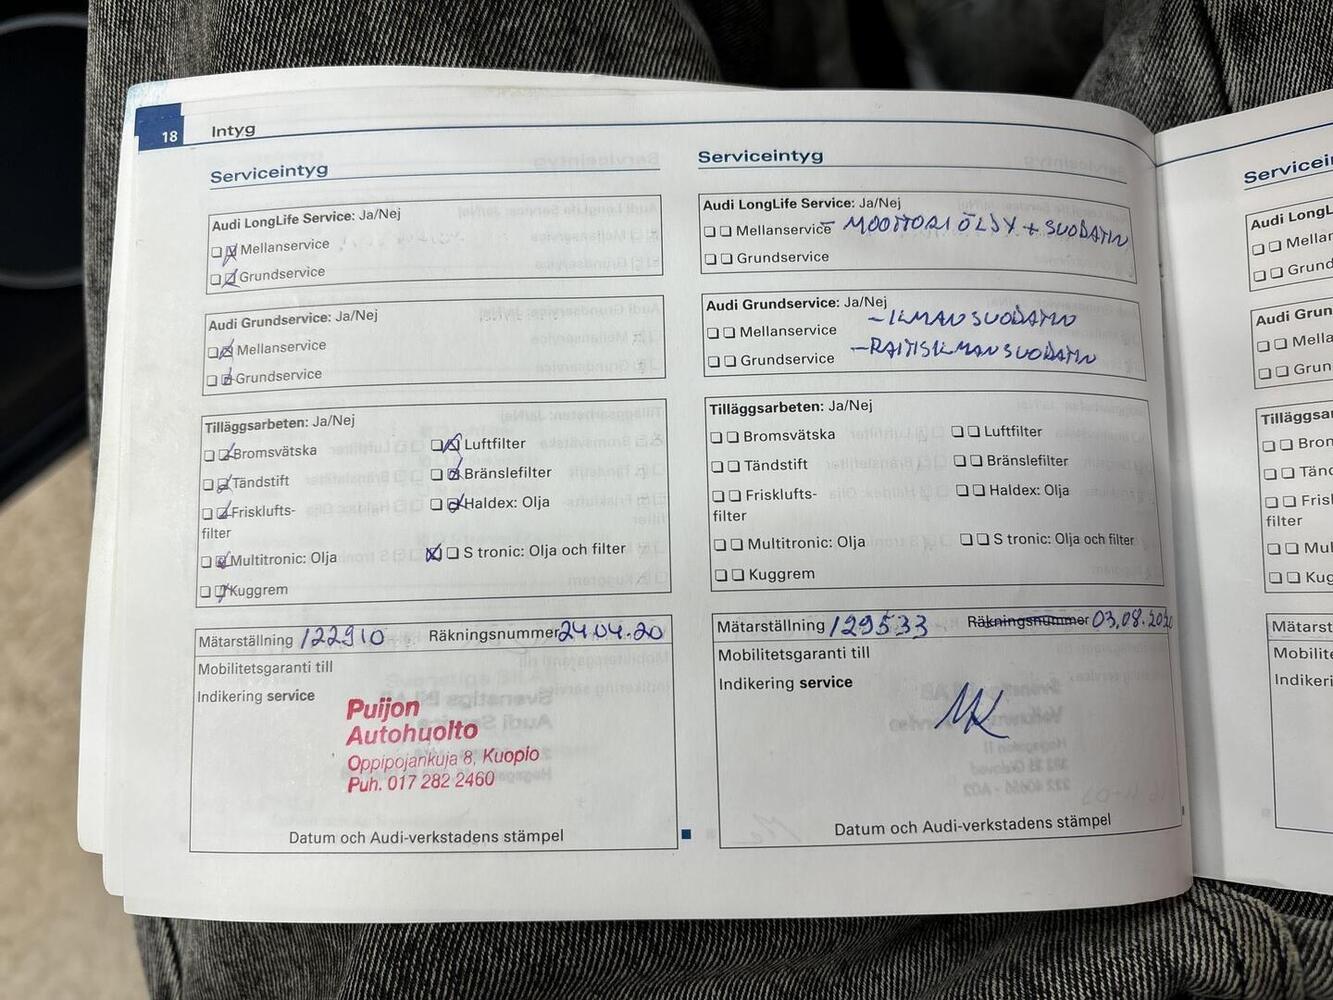 18 Intyg
Serviceintyg
Audi LongLife Service: Ja/Nej
Mellanservice
Grundservice
Audi Grundservice: Ja/Nej
Mellanservice
Grundservice
Tilläggsarbeten: Ja/Nej
Bromsvätska
Luftfilter
Tändstift
Bränslefilter
Frisklufts-
filter
Haldex: Olja
Multitronic: Olja
S tronic: Olja och filter
Kuggrem
Mätarställning 122910 Räkningsnummer 24.04.20
Mobilitetsgaranti till
Indikering service
Puijon
Autohuolto
Oppipojankuja 8, Kuopio
Puh. 017 282 2460
Datum och Audi-verkstadens stämpel
Serviceintyg
Audi LongLife Service: Ja/Nej
Mellanservice - MOOTTORIÖLJY + SUODATIN
Grundservice
Audi Grundservice: Ja/Nej
- ILMANSUODATIN
Mellanservice
Grundservice - RAITISILMANSUODATIN
Tilläggsarbeten: Ja/Nej
Bromsvätska
Luftfilter
Tändstift
Bränslefilter
Frisklufts-
filter
Haldex: Olja
Multitronic: Olja
S tronic: Olja och filter
Kuggrem
Mätarställning 129533 Räkningsnummer 03.08.2020
Mobilitetsgaranti till
Indikering service
MK
Datum och Audi-verkstadens stämpel
Servicei
Audi LongL
Mellan
Grund
Audi Grun
Mella
Grun
Tilläggsa
Bron
Tänd
Frisk
filter
Mul
Kug
Mätarst
Mobilite
Indikeri